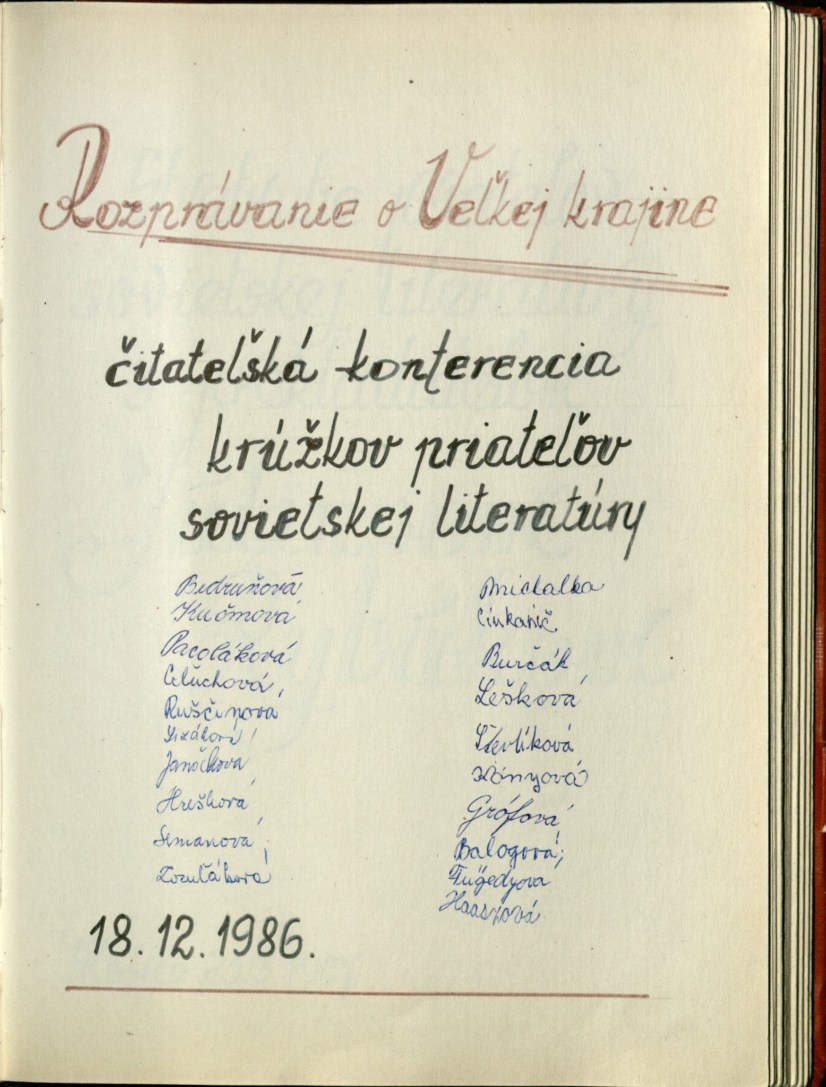 Rozprávanie o Veľkej krajine
čitateľská konferencia
krúžkov priateľov
sovietskej literatúry
Bedruňová
Kučmová
Pacoláková
Celuchová,
Ruščinova
Janočkova
Hreškova
Semanova,
Zozuľáková
Michalka
Cinkanič
Burčák
Lešková
Števlíková
Kónyová
Grófová
Balogová,
Fügedyova
Haaszová
18.12.1986.